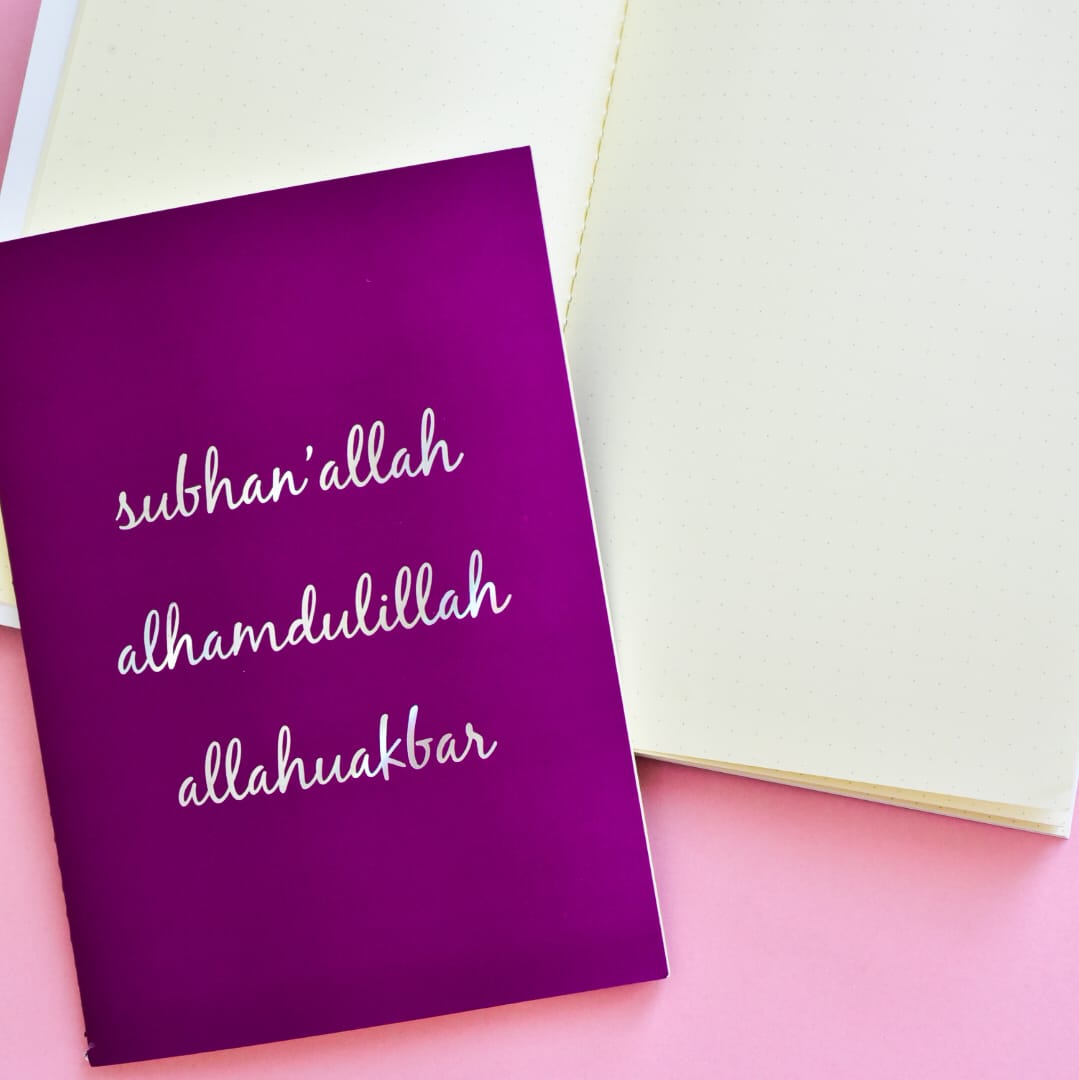 subhan'allah
alhamdulillah
allahuakbar